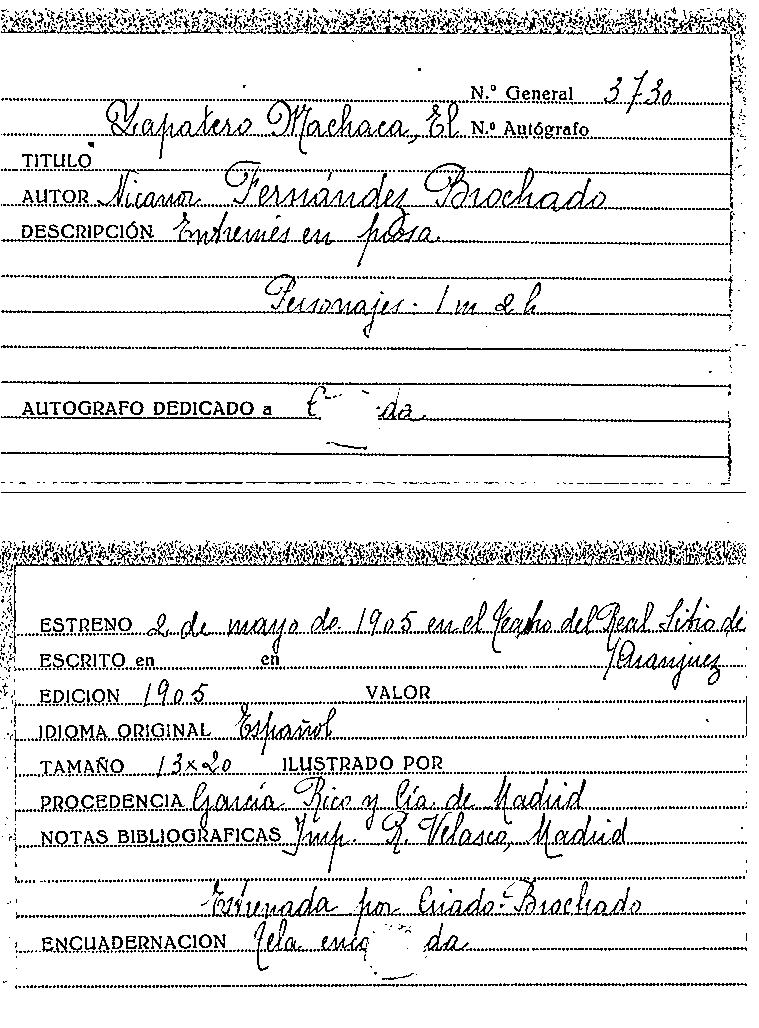 N.º General 3730
Zapatero Machaca, El N.º Autógrafo
TITULO
AUTOR Nicanor Fernández Brochado
DESCRIPCIÓN Entremés en prosa.
Personajes. 1 m 2 h
AUTOGRAFO DEDICADO a
ESTRENO 2 de mayo de 1905 en el Teatro del Real Sitio de
ESCRITO en en /Aranjuez
EDICION 1905 VALOR
IDIOMA ORIGINAL Español
TAMAÑO 13x20 ILUSTRADO POR
PROCEDENCIA García Rico y Cía. de Madrid
NOTAS BIBLIOGRAFICAS Imp. R. Velasco, Madrid
Estrenada por Criado-Brochado
ENCUADERNACION Tela